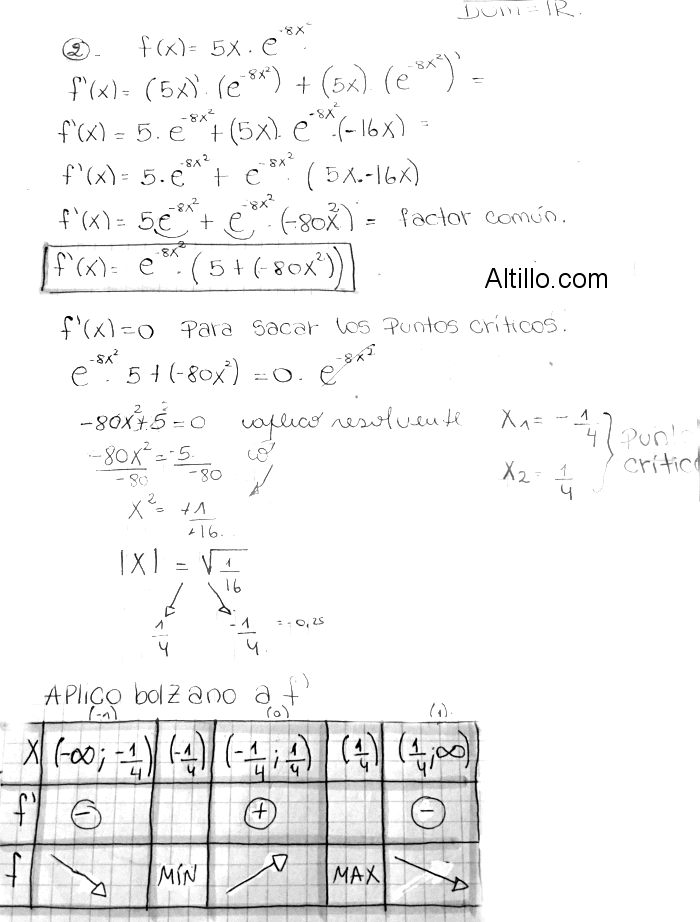 Dom = IR.
② - f(x) = 5x · e^-8x²
f'(x) = (5x)' · (e^-8x²) + (5x) · (e^-8x²)' =
f'(x) = 5 · e^-8x² + (5x) · e^-8x² · (-16x) =
f'(x) = 5 · e^-8x² + e^-8x² · (5x · -16x)
f'(x) = 5e^-8x² + e^-8x² · (-80x²) = factor común.
f'(x) = e^-8x² · (5 + (-80x²))
Altillo.com
f'(x) = 0 para sacar los puntos críticos.
e^-8x² · 5 + (-80x²) = 0 · e^-8x²
-80x² + 5 = 0 aplico resolvente
-80x²/-80 = -5/-80
x² = +1/+16
|x| = √1/16
1/4 -1/4 = -0,25
x1 = -1/4
x2 = 1/4
APLICO bolzano a f'
(-1) (0) (1)
X (-∞ ; -1/4) (-1/4) (-1/4 ; 1/4) (1/4) (1/4 ; ∞)
f' - + -
f ↘ MÍN ↗ MAX ↘